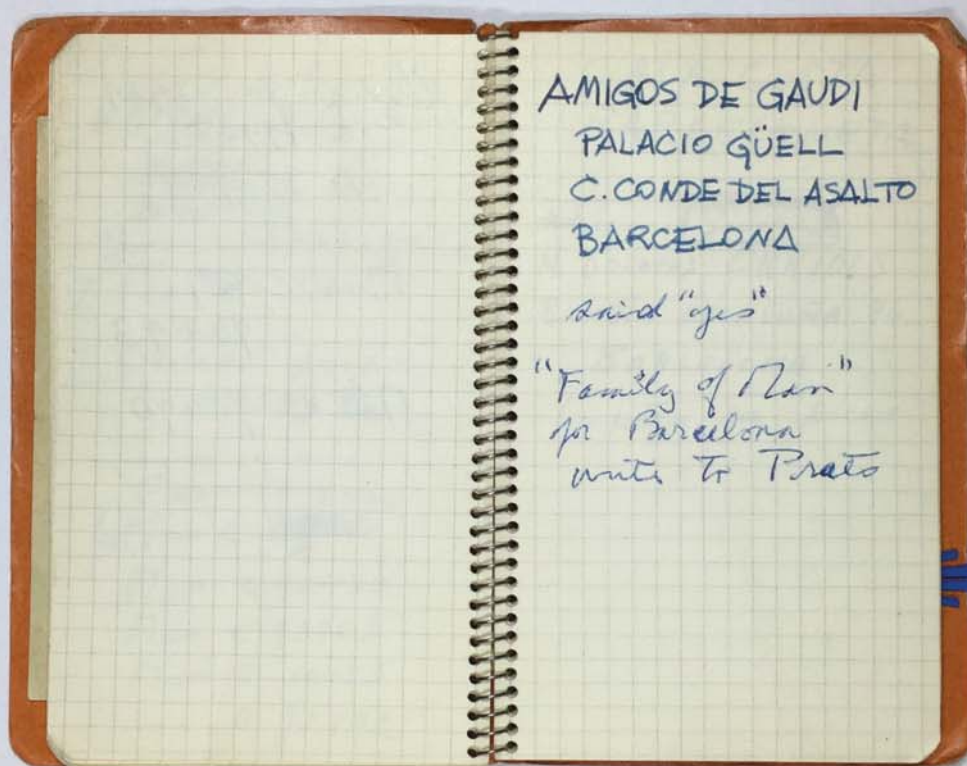 AMIGOS DE GAUDI
PALACIO GÜELL
C. CONDE DEL ASALTO
BARCELONA
said "yes"
"Family of Man"
for Barcelona
write to Prats